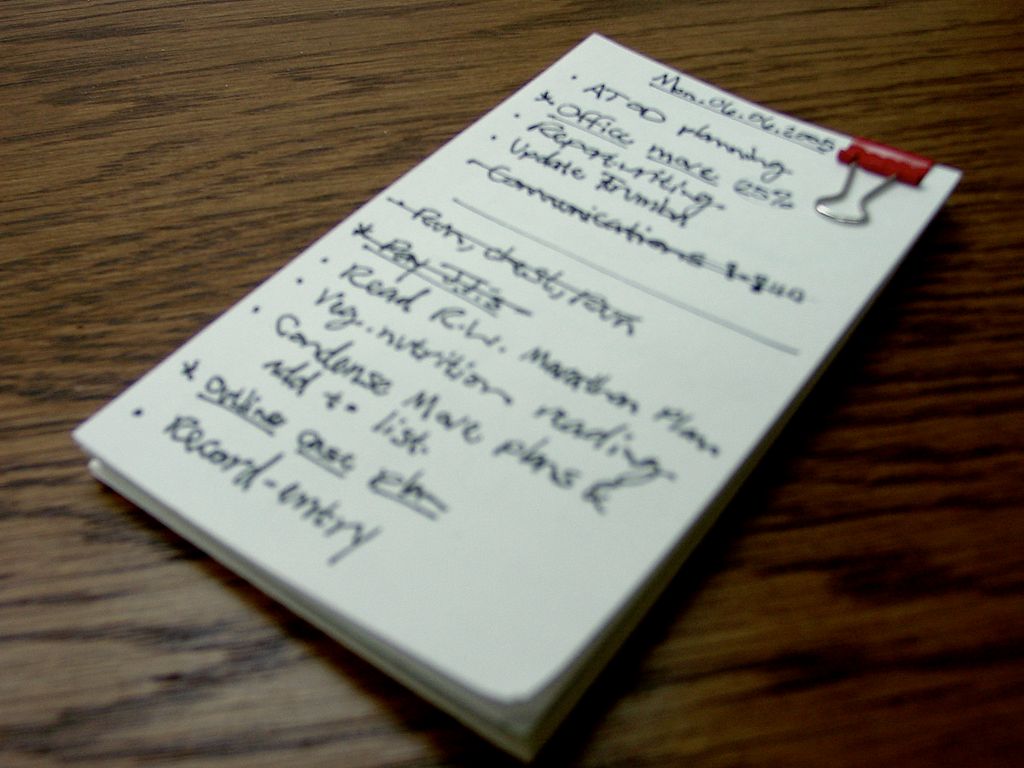 Mon. 06.06.2005
• ATOD planning
* Office move 25%
• Report writing
• Update
- Communications
- Run, chest,
* Pay
• Read R.W. Marathon Plan
• Veg. nutrition reading
• Condense Move plans &
add to list.
* Outline case
• Record-entry